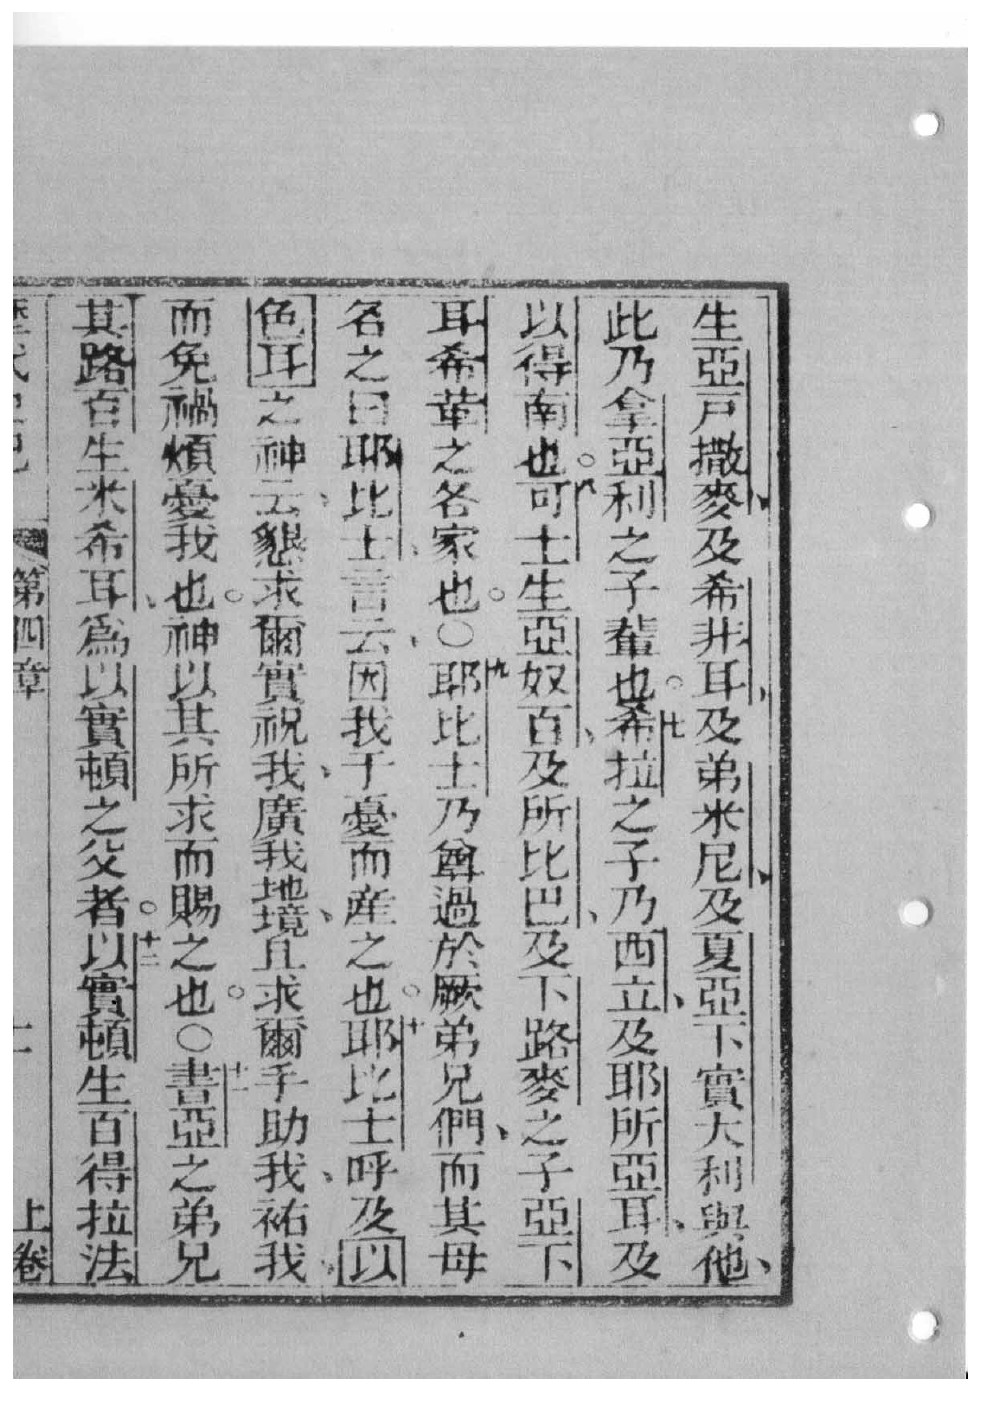 生亞戸撒麥及希非耳及弟米尼及夏亞下實大利與他、
此乃拿亞利之子輩也。七希拉之子乃西立、及耶所亞耳、及
以得南也。八可士生亞奴百、及所比巴、及下路麥之子亞下
耳希葷之各家也。○九耶比士乃尊過於厥弟兄們、而其母
名之曰耶比士、言云、因我于憂而産之也。十耶比士呼及以
色耳之神云、懇求爾實祝我、廣我地境、且求爾手助我、祐我、
而免禍煩憂我也。神以其所求而賜之也。○十一書亞之弟兄
其路百生米希耳、爲以實頓之父者。十二以實頓生百得拉法
第四章
上卷